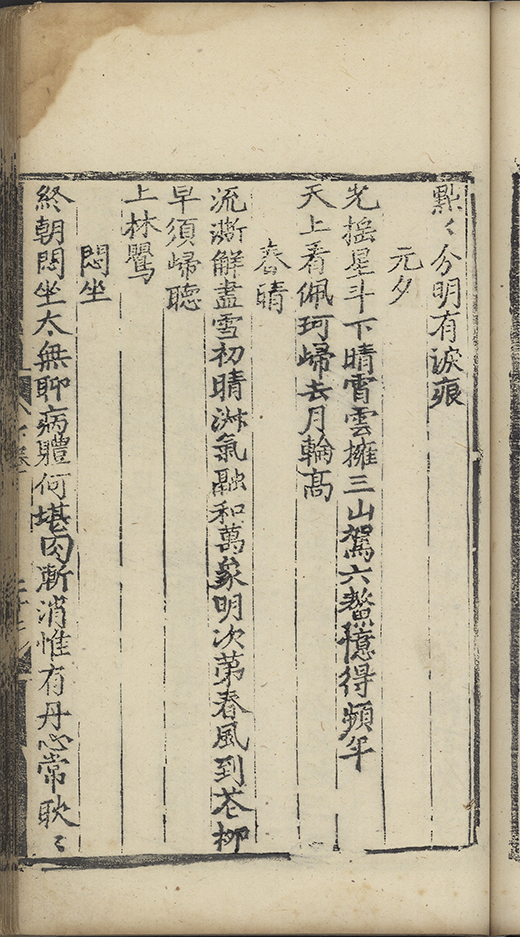 點〻分明有淚痕
元夕
光搖星斗下晴霄雲擁三山駕六鰲憶得頻年
天上看佩珂歸去月輪高
春晴
流澌解盡雪初晴淋氣融和萬象明次第春風到苍柳
早須歸聽
上林鶯
悶坐
終朝悶坐太無聊病體何堪肉漸消惟有丹心常耿〻